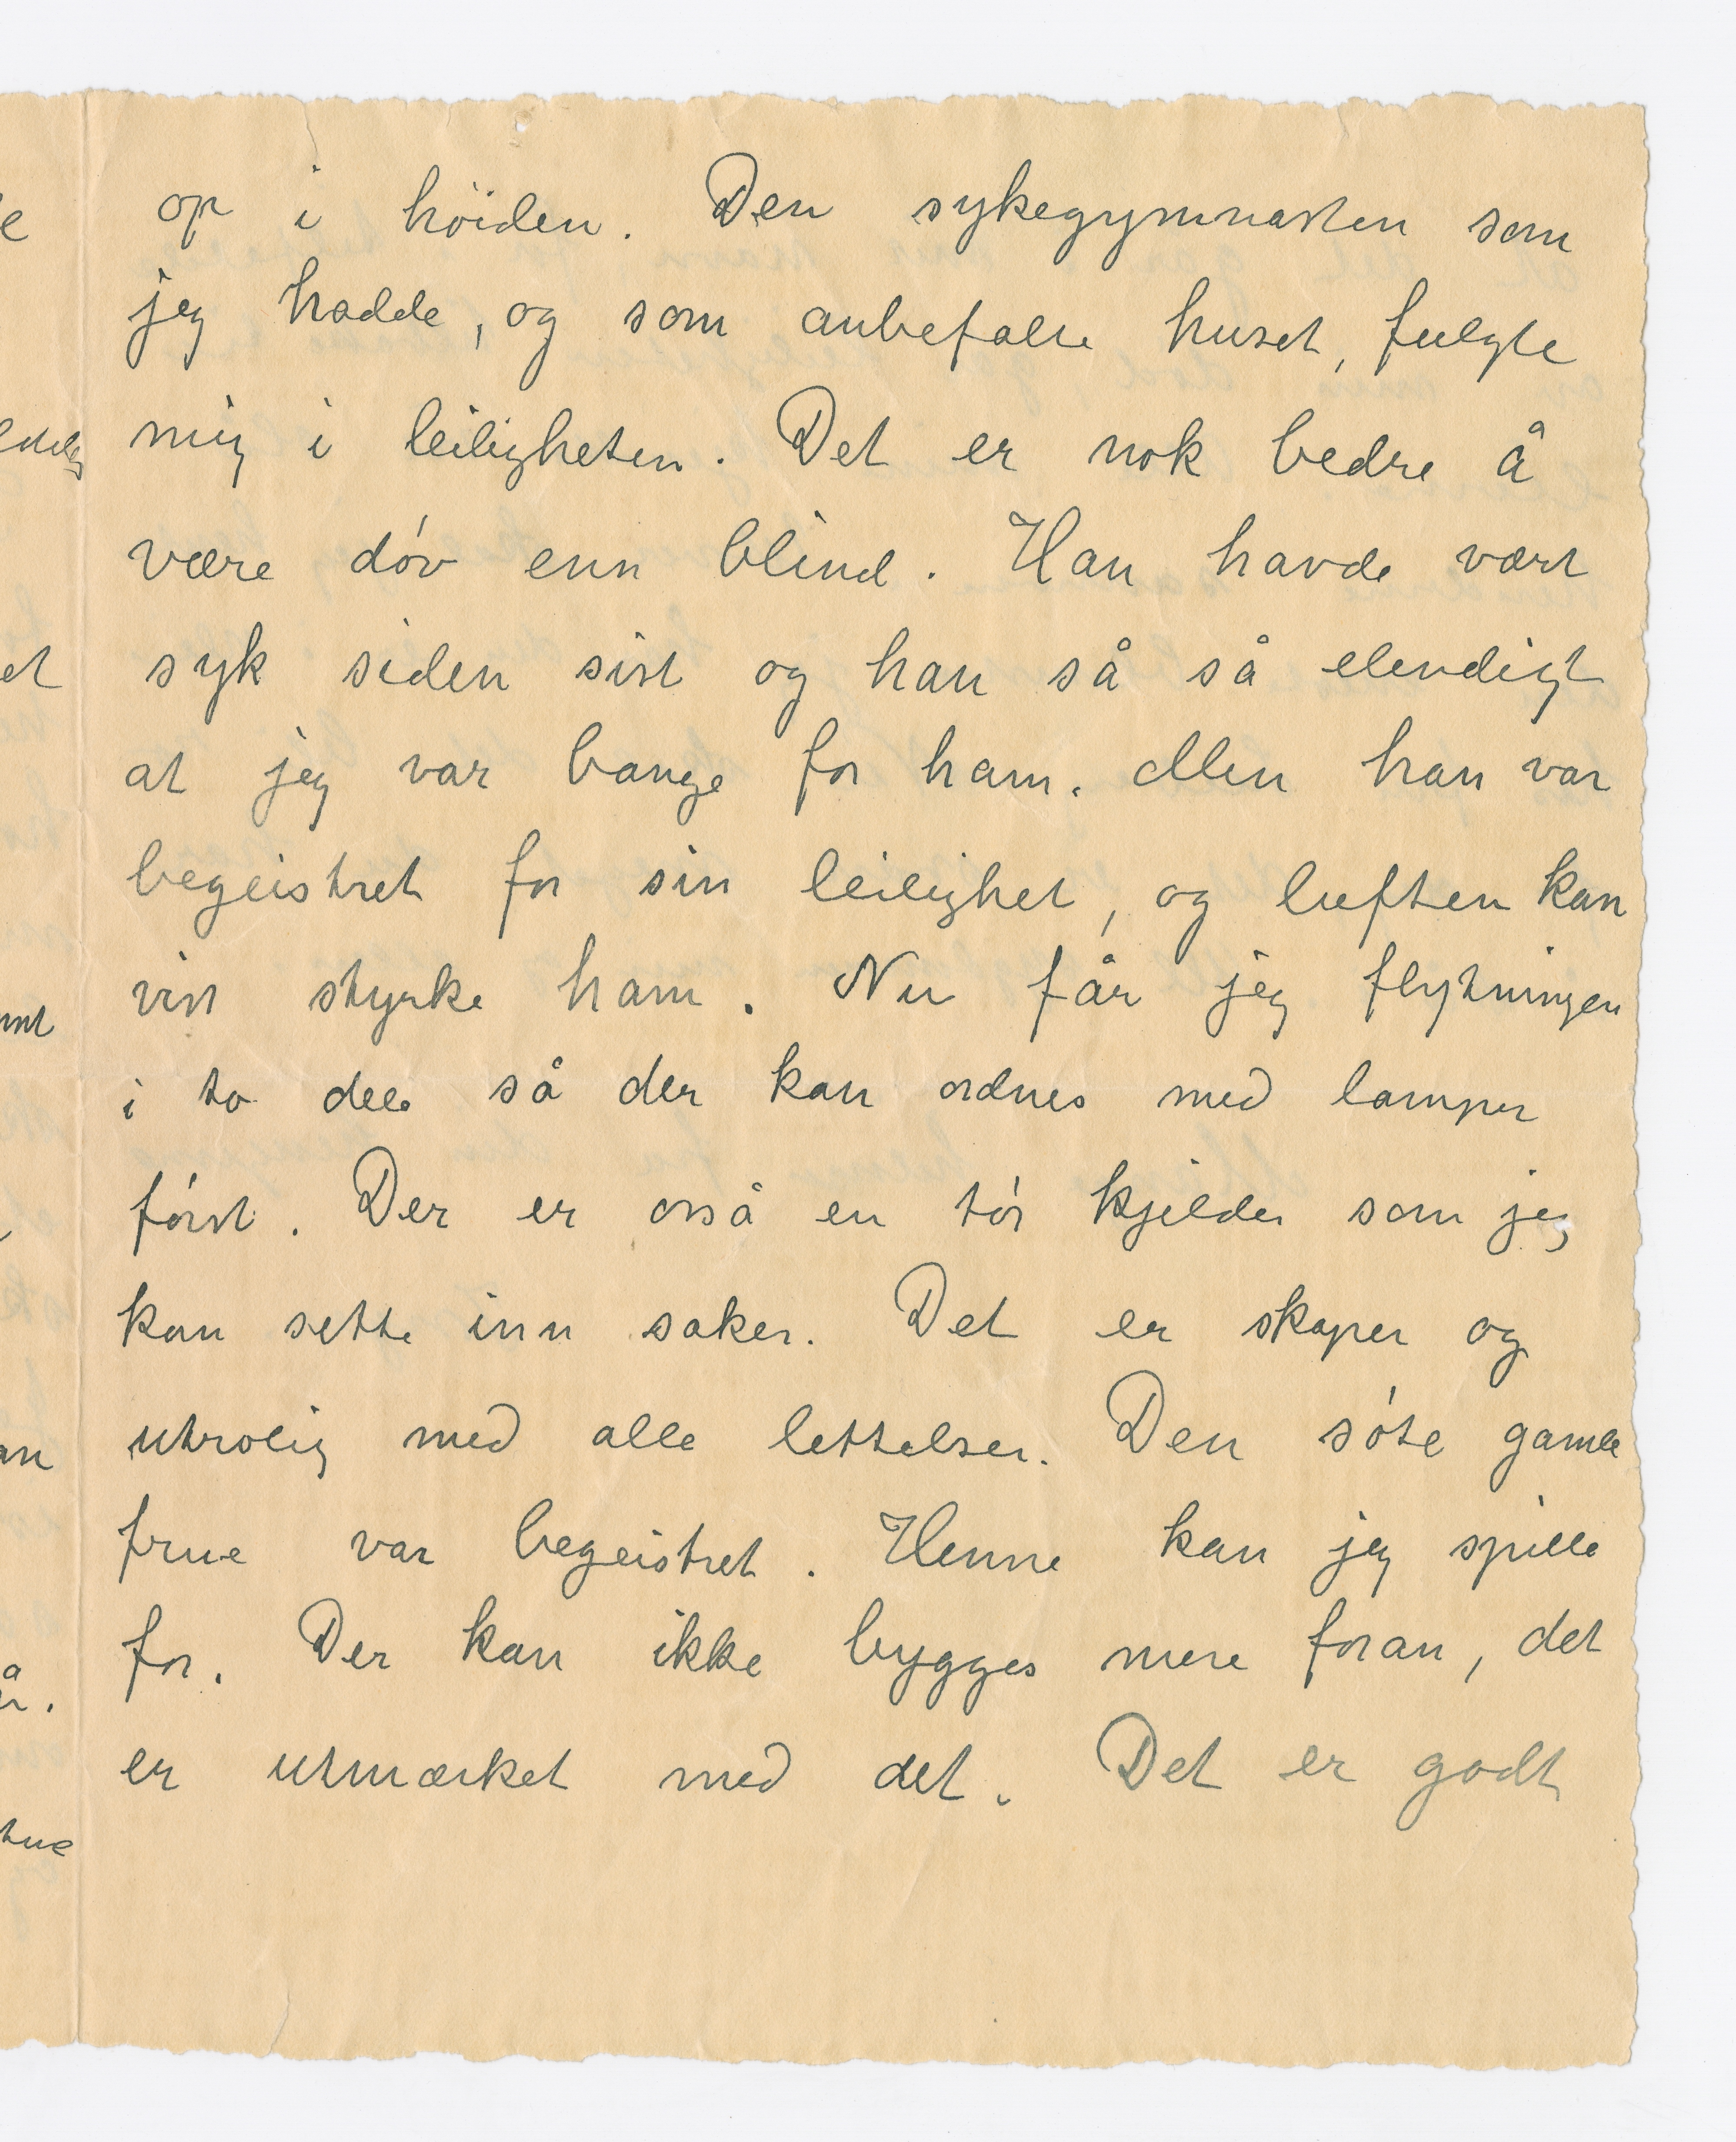 op i höiden. Den sykegymnasten som
jeg hadde, og som anbefalte huset, fulgte
mig i leiligheten. Det er nok bedre å
være døv enn blind. Han havde vært
syk siden sist og han så så elendigt
at jeg var bange for ham. Men han var
begeistret for sin leilighet, og luften kan
vist styrke ham. Nu får jeg flytningen
i to dele så der kan ordnes med lamper
først. Der er også en tør kjelder som jeg
kan sette inn saker. Det er skaper og
utrolig med alle lettelser. Den søte gamle
frue var begeistret. Henne kan jeg spille
for. Der kan ikke bygges mere foran, det
er utmærket med det. Det er godt